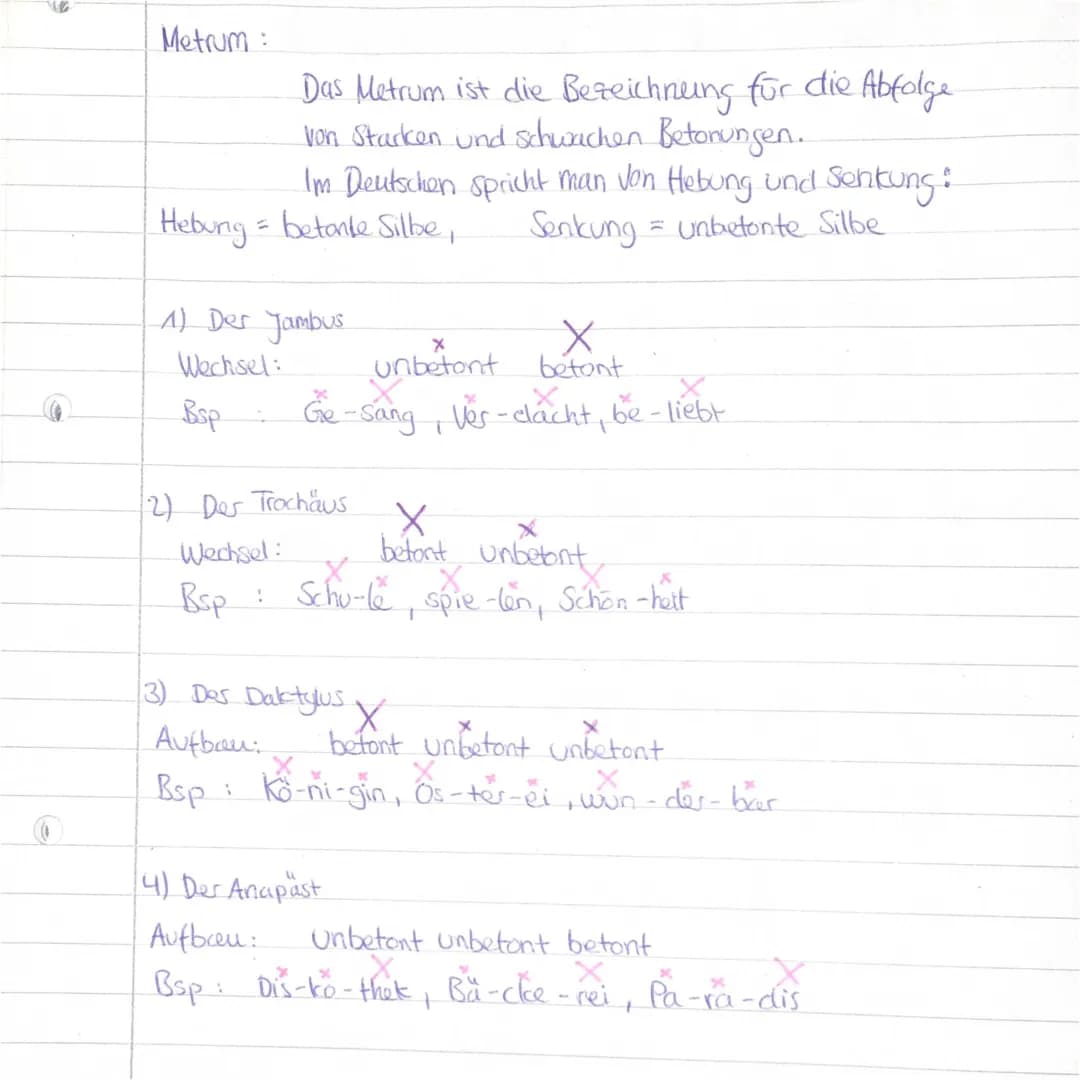 Metrum :
Das Metrum ist die Bezeichnung für die Abfolge
von starken und schwachen Betonungen.
Im Deutschen spricht man von Hebung und Senkung:
Hebung = betonte Silbe, Senkung = unbetonte Silbe
1) Der Jambus
x X
Wechsel: unbetont betont
x X x X x X
Bsp : Ge-sang, Ver-dacht, be-liebt
2) Der Trochäus
X x
Wechsel: betont unbetont
X x X x X x
Bsp : Schu-le, spie-len, Schön-heit
3) Der Daktylus
X x x
Aufbau: betont unbetont unbetont
X x x X x x X x x
Bsp : Kö-ni-gin, Os-ter-ei, wun-der-bar
4) Der Anapäst
Aufbau: unbetont unbetont betont
x x X x x X x x X
Bsp : Dis-ko-thek, Bä-cke-rei, Pa-ra-dis